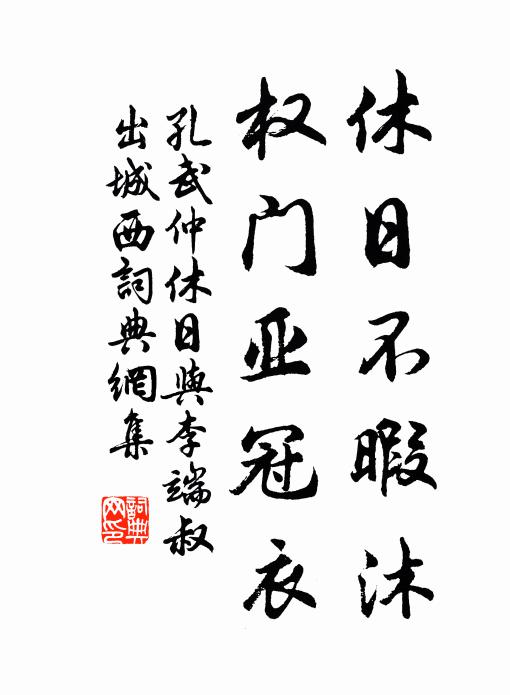 休日不暇沐
权门亚冠衣
孔武仲休日與李端叔
出城西詞典網集
詞典
网印